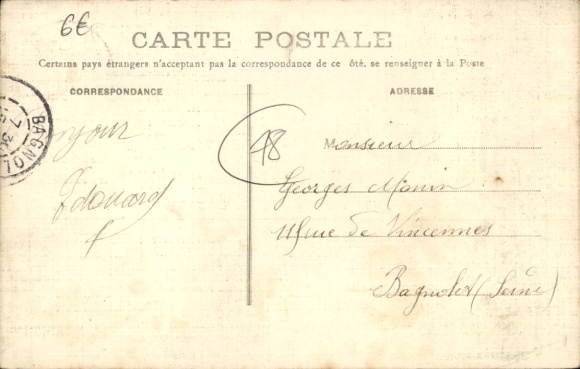 6€
CARTE POSTALE
Certains pays étrangers n'acceptant pas la correspondance de ce ôté, se renseigner à la Poste
CORRESPONDANCE
ADRESSE
BAGNOL
7 30
Bonjour
Edouard
48
Monsieur
Georges
rue de Vincennes
Bagnolet (Seine)